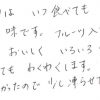 りは いつ食べても
味です。フルーツ入
おいしく いろいろ
ても わくわくします。
かったので 少し凍らせて